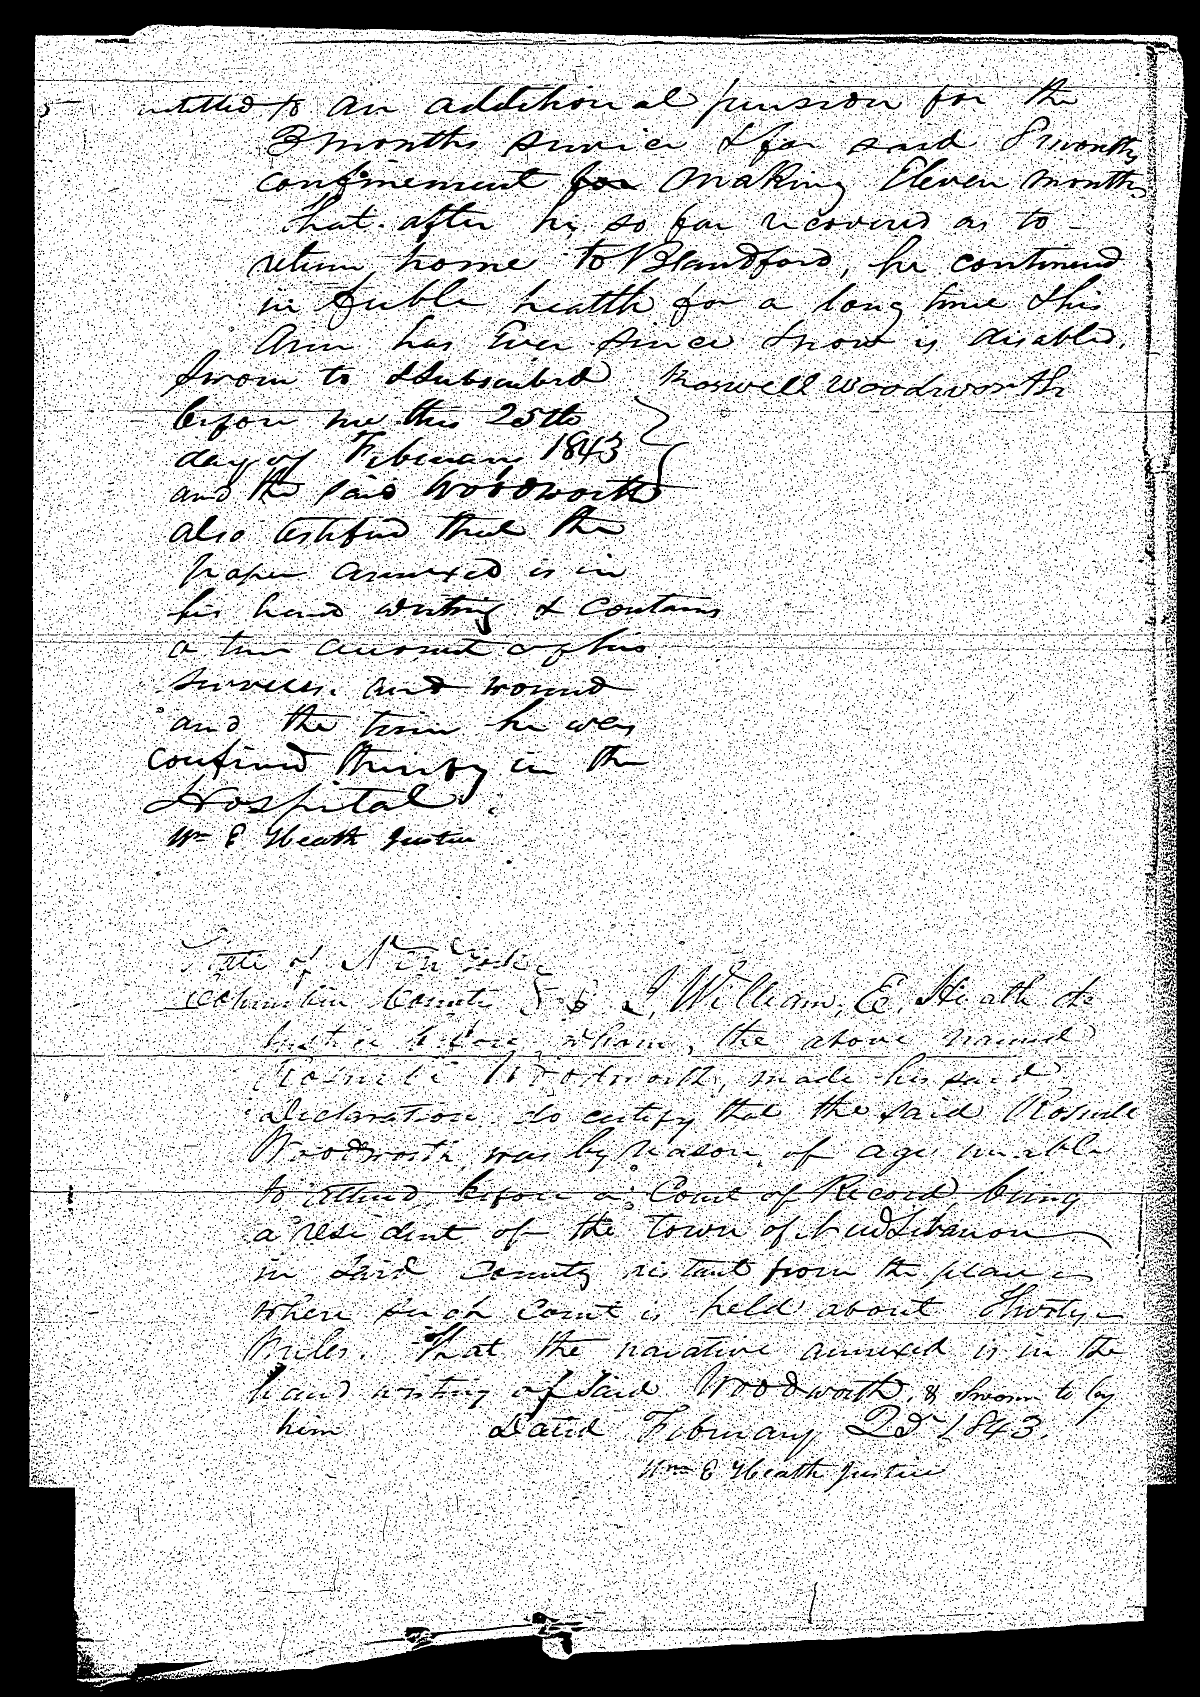 intitled to an additional pension for the
3 months service & for said 8 months
confinement for making Eleven months
that after he so far recovered as to
return home to Blandford, he continued
in feeble health for a long time & his
Arm has Ever since & now is disabled.
Sworn to & Subscribed Roswell Woodworth
before me this 25th
day of February 1843
and the said Woodworth
also testified that the
paper annexed is in
his hand writing & contains
a true account of his
services, and wound
and the time he was
confined thereby in the
Hospital.
Wm E Heath Justice
State of New York
Columbia County ss I, William, E, Heath the
Justice before whom, the above named
Roswell Woodworth, made his said
Declaration do certify that the said Roswell
Woodworth, was by reason of age unable
to attend before a Court of Record being
a resident of the town of New Lebanon
in said County distant from the place
where such Court is held about Thirty
Miles. That the narative annexed is in the
hand writing of said Woodworth, & Sworn to by
him Dated February 2d 1843.
Wm E Heath Justice